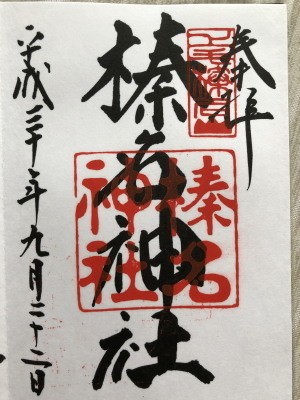 奉拝
榛名神社
榛名
神社
平成三十年九月二十二日